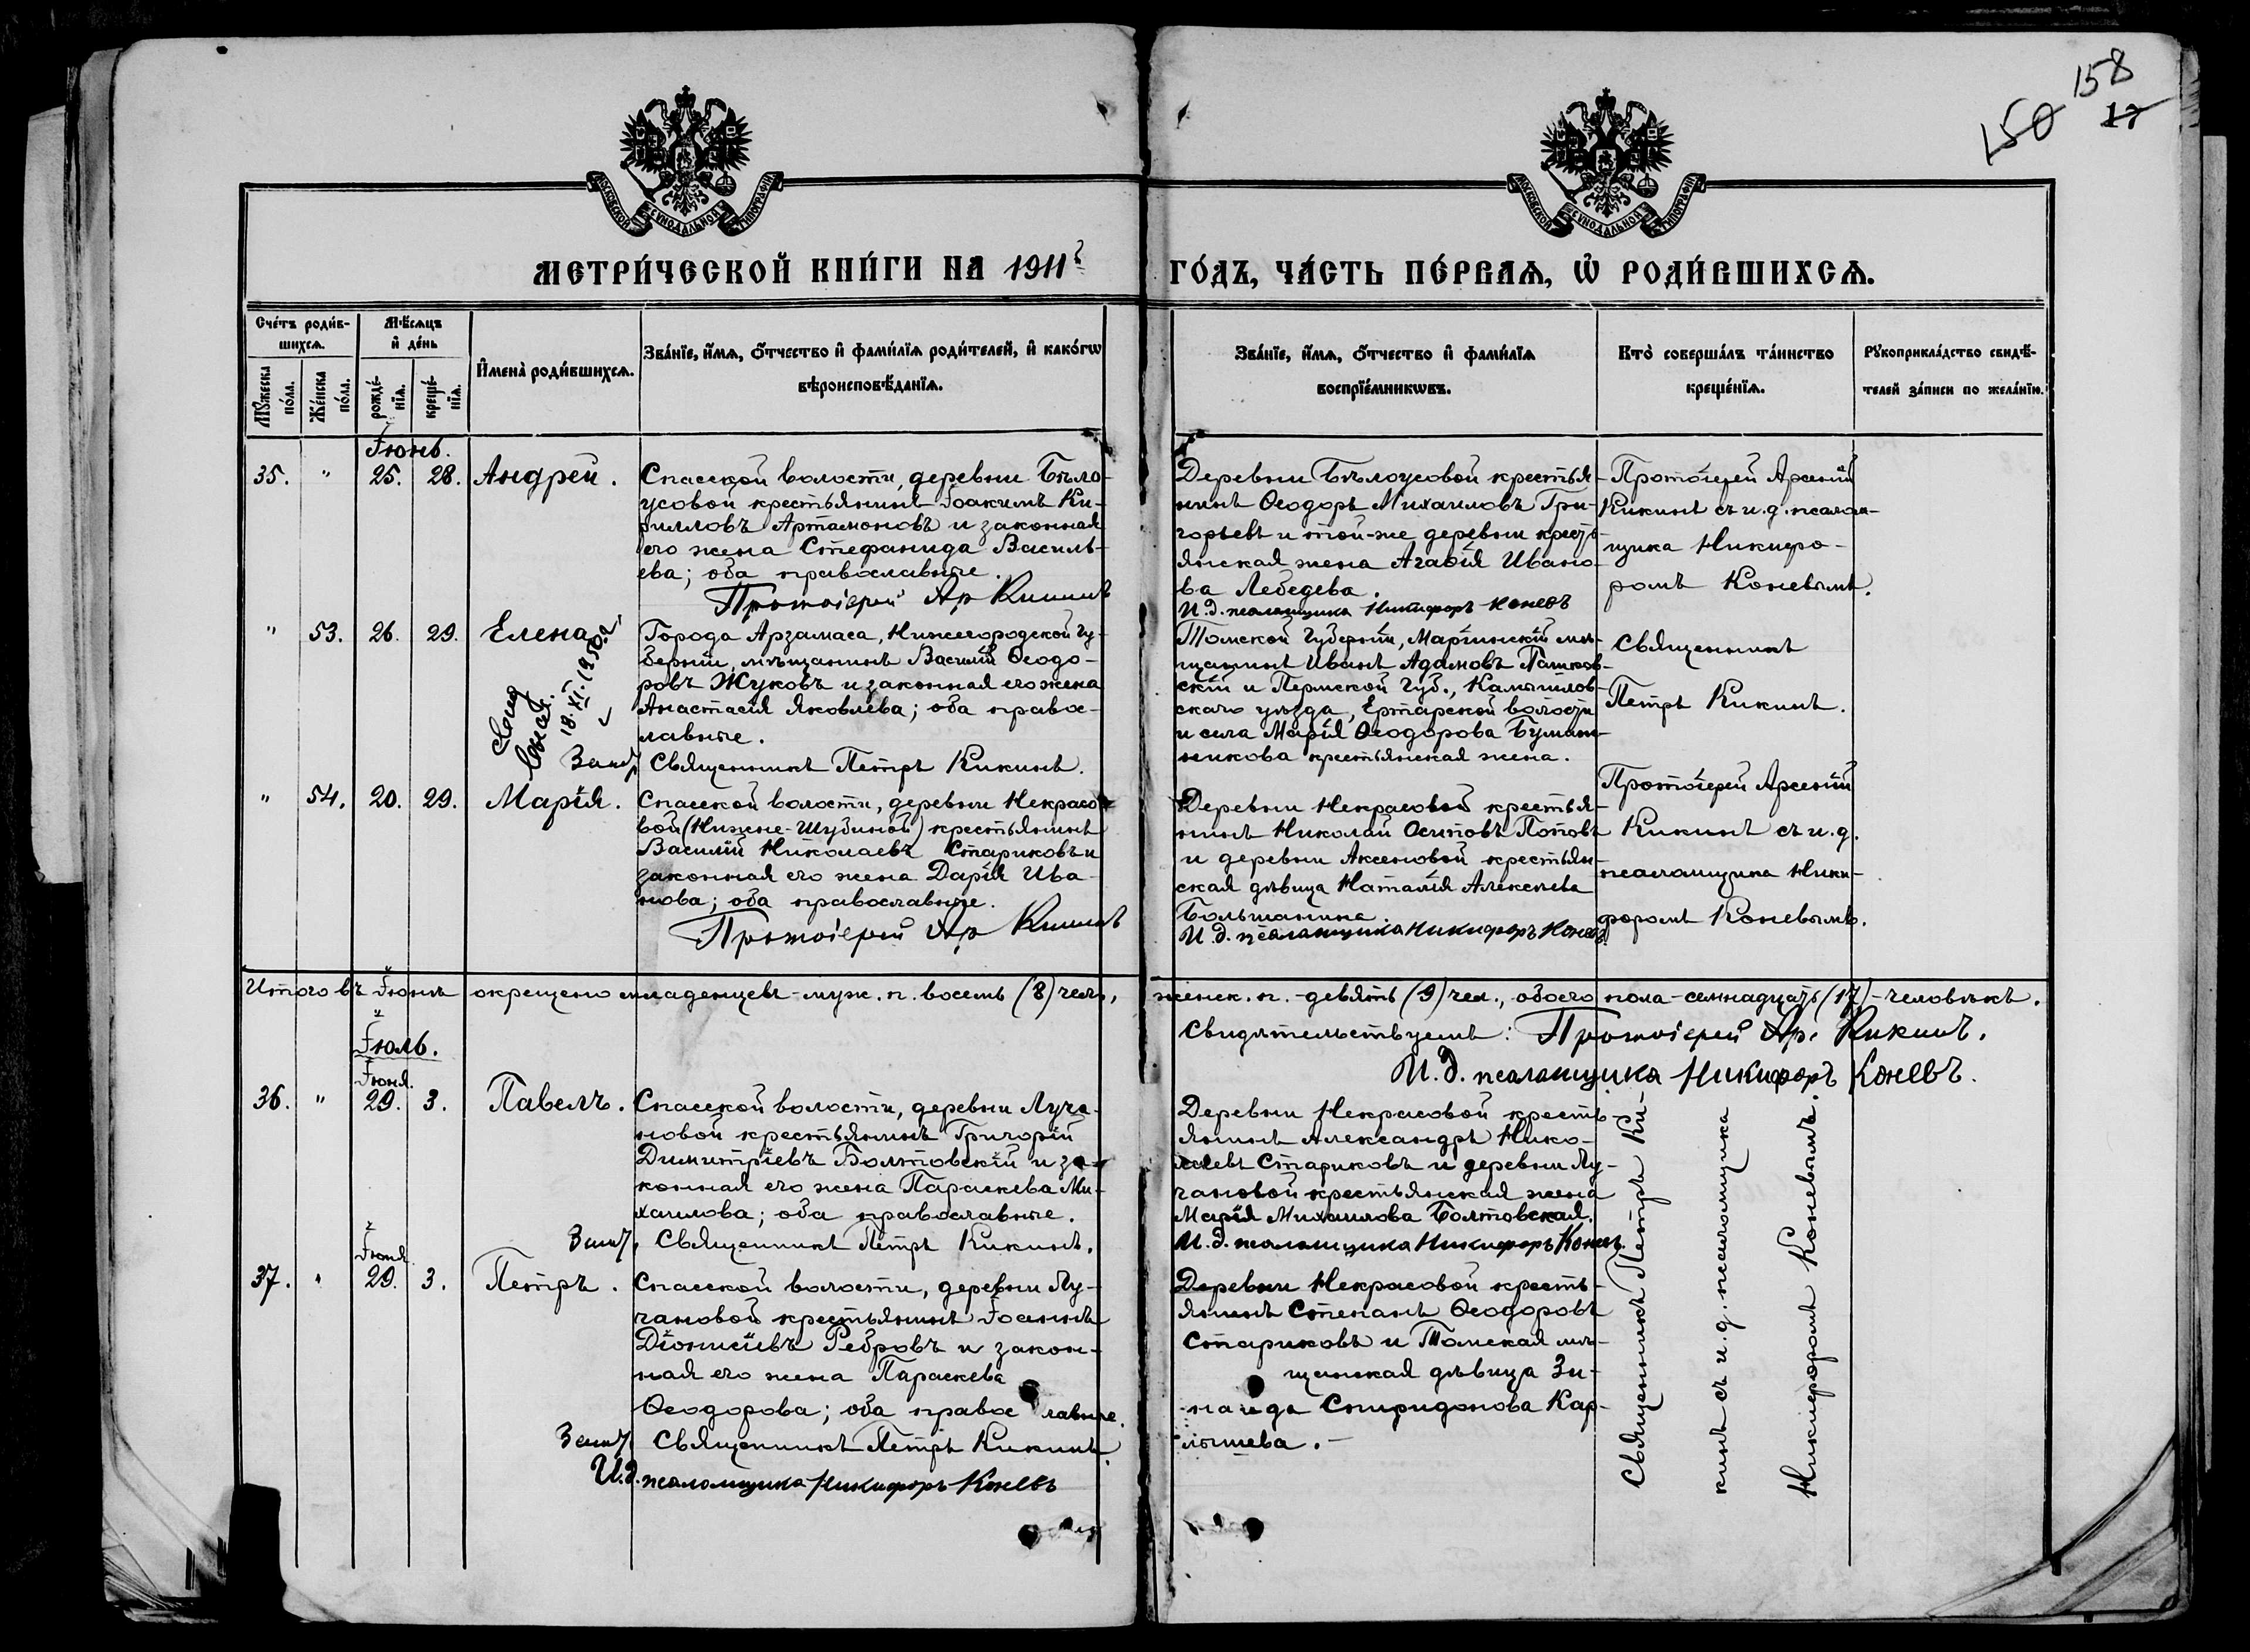 158
150
17
МОСКОВСКОЙ СѴНОДАЛЬНОЙ ТИПОГРАФІИ
МОСКОВСКОЙ СѴНОДАЛЬНОЙ ТИПОГРАФІИ
МЕТРИ́ЧЕСКОЙ КНИ́ГИ НА 1911 г.
ГО́ДЪ, ЧА́СТЬ ПЕ́РВАѦ, Ѡ҆ РОДИ́ВШИХСѦ.
Сче́тъ роди́в-
шихсѧ.
Мꙋ́жеска по́ла.
Же́нска по́ла.
Мѣ́сѧцъ
и҆ де́нь
рожде́-
нїѧ.
креще́-
нїѧ.
И҆мена̀ роди́вшихсѧ.
Зва́нїе, и҆́мѧ, ѻ҆́тчество и҆ фами́лїѧ роди́телей, и҆ како́гѡ
вѣроисповѣ́данїѧ.
Зва́нїе, и҆́мѧ, ѻ҆́тчество и҆ фами́лїѧ
воспрїе́мникѡвъ.
Кто̀ соверша́лъ та́инство
креще́нїѧ.
Рꙋкоприкла́дство свидѣ́-
телей за́писи по жела́нїю.
Іюнь.
35. " 25. 28. Андрей.
Спасской волости, деревни Бѣло-
усовой крестьянинъ Іоакимъ Ки-
рилловъ Артамоновъ и законная
его жена Стефанида Василь-
ева; оба православные.
Протоіерей Ар Кикинъ
Деревни Бѣлоусовой крестья-
нинъ Ѳеодоръ Михаиловъ Гри-
горьевъ и той-же деревни кресть-
янская жена Агаѳія Ивано-
ва Лебедева.
И.д. псаломщика Никифоръ Коневъ
Протоіерей Арсеній
Кикинъ съ и.д. псалом-
щика Никифо-
ромъ Коневымъ.
" 53. 26. 29. Елена
18.XI.1950 г.
Города Арзамаса, Нижегородской гу-
берніи, мѣщанинъ Василій Ѳеодо-
ровъ Жуковъ и законная его жена
Анастасія Яковлева; оба правос-
лавные.
Священникъ Петръ Кикинъ.
Томской губерніи, Маріинскій мѣ-
щанинъ Иванъ Адамовъ Пашков-
скій и Пермской губ., Камышлов-
скаго уѣзда, Ертарской волости
и села Марія Ѳеодорова Бумаж-
никова крестьянская жена.
Священникъ
Петръ Кикинъ.
" 54. 20. 29. Марія.
Спасской волости, деревни Некрасо-
вой (Нижне-Шубиной) крестьянинъ
Василій Николаевъ Стариковъ и
законная его жена Дарія Ива-
нова; оба православные.
Протоіерей Ар Кикинъ
Деревни Некрасовой крестья-
нинъ Николай Осиповъ Поповъ
и деревни Аксеновой крестьян-
ская дѣвица Наталія Алексѣева
Большанина.
И.д. псаломщика Никифоръ Коневъ
Протоіерей Арсеній
Кикинъ съ и.д.
псаломщика Ники-
форомъ Коневымъ.
Итого въ Іюнѣ окрещено младенцевъ-муж. п. восемь (8) чел.,
женск. п. - девять (9) чел., обоего пола - семнадцать (17) - человѣкъ.
Свидѣтельствуемъ: Протоіерей Ар. Кикинъ.
И.д. псаломщика Никифоръ Коневъ.
Іюль.
Іюня.
36. " 29. 3. Павелъ.
Спасской волости, деревни Луча-
новой крестьянинъ Григорій
Димитріевъ Болтовскій и за-
конная его жена Параскева Ми-
хаилова; оба православные.
Священникъ Петръ Кикинъ.
Деревни Некрасовой кресть-
янинъ Александръ Нико-
лаевъ Стариковъ и деревни Лу-
чановой крестьянская жена
Марія Михаилова Болтовская.
И.д. псаломщика Никифоръ Коневъ.
Священникъ Петръ Ки-
кинъ съ и.д. псаломщика
Никифоромъ Коневымъ.
Іюня
37. " 29. 3. Петръ.
Спасской волости, деревни Лу-
чановой крестьянинъ Іоаннъ
Діонисіевъ Ребровъ и закон-
ная его жена Параскева
Ѳеодорова; оба православные.
Священникъ Петръ Кикинъ.
И.д. псаломщика Никифоръ Коневъ
Деревни Некрасовой кресть-
янинъ Степанъ Ѳеодоровъ
Стариковъ и Томская мѣ-
щанская дѣвица Зи-
наида Спиридонова Кар-
пышева.